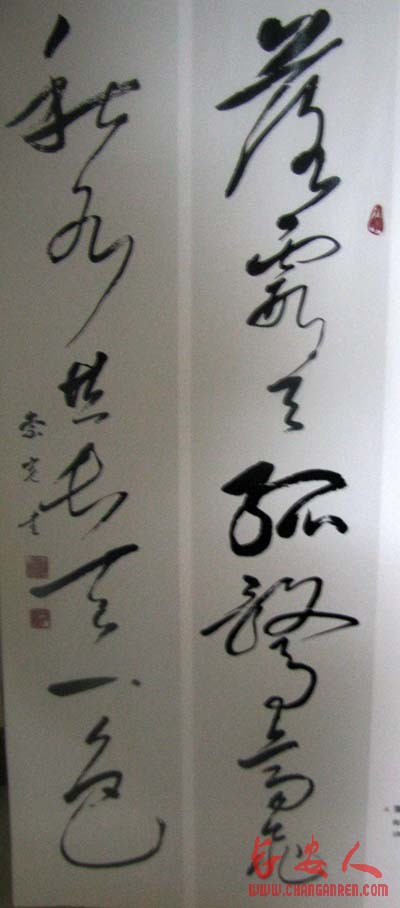 落霞与孤鶩齊飛
秋水共長天一色
长安人
WWW.CHANGANREN.COM